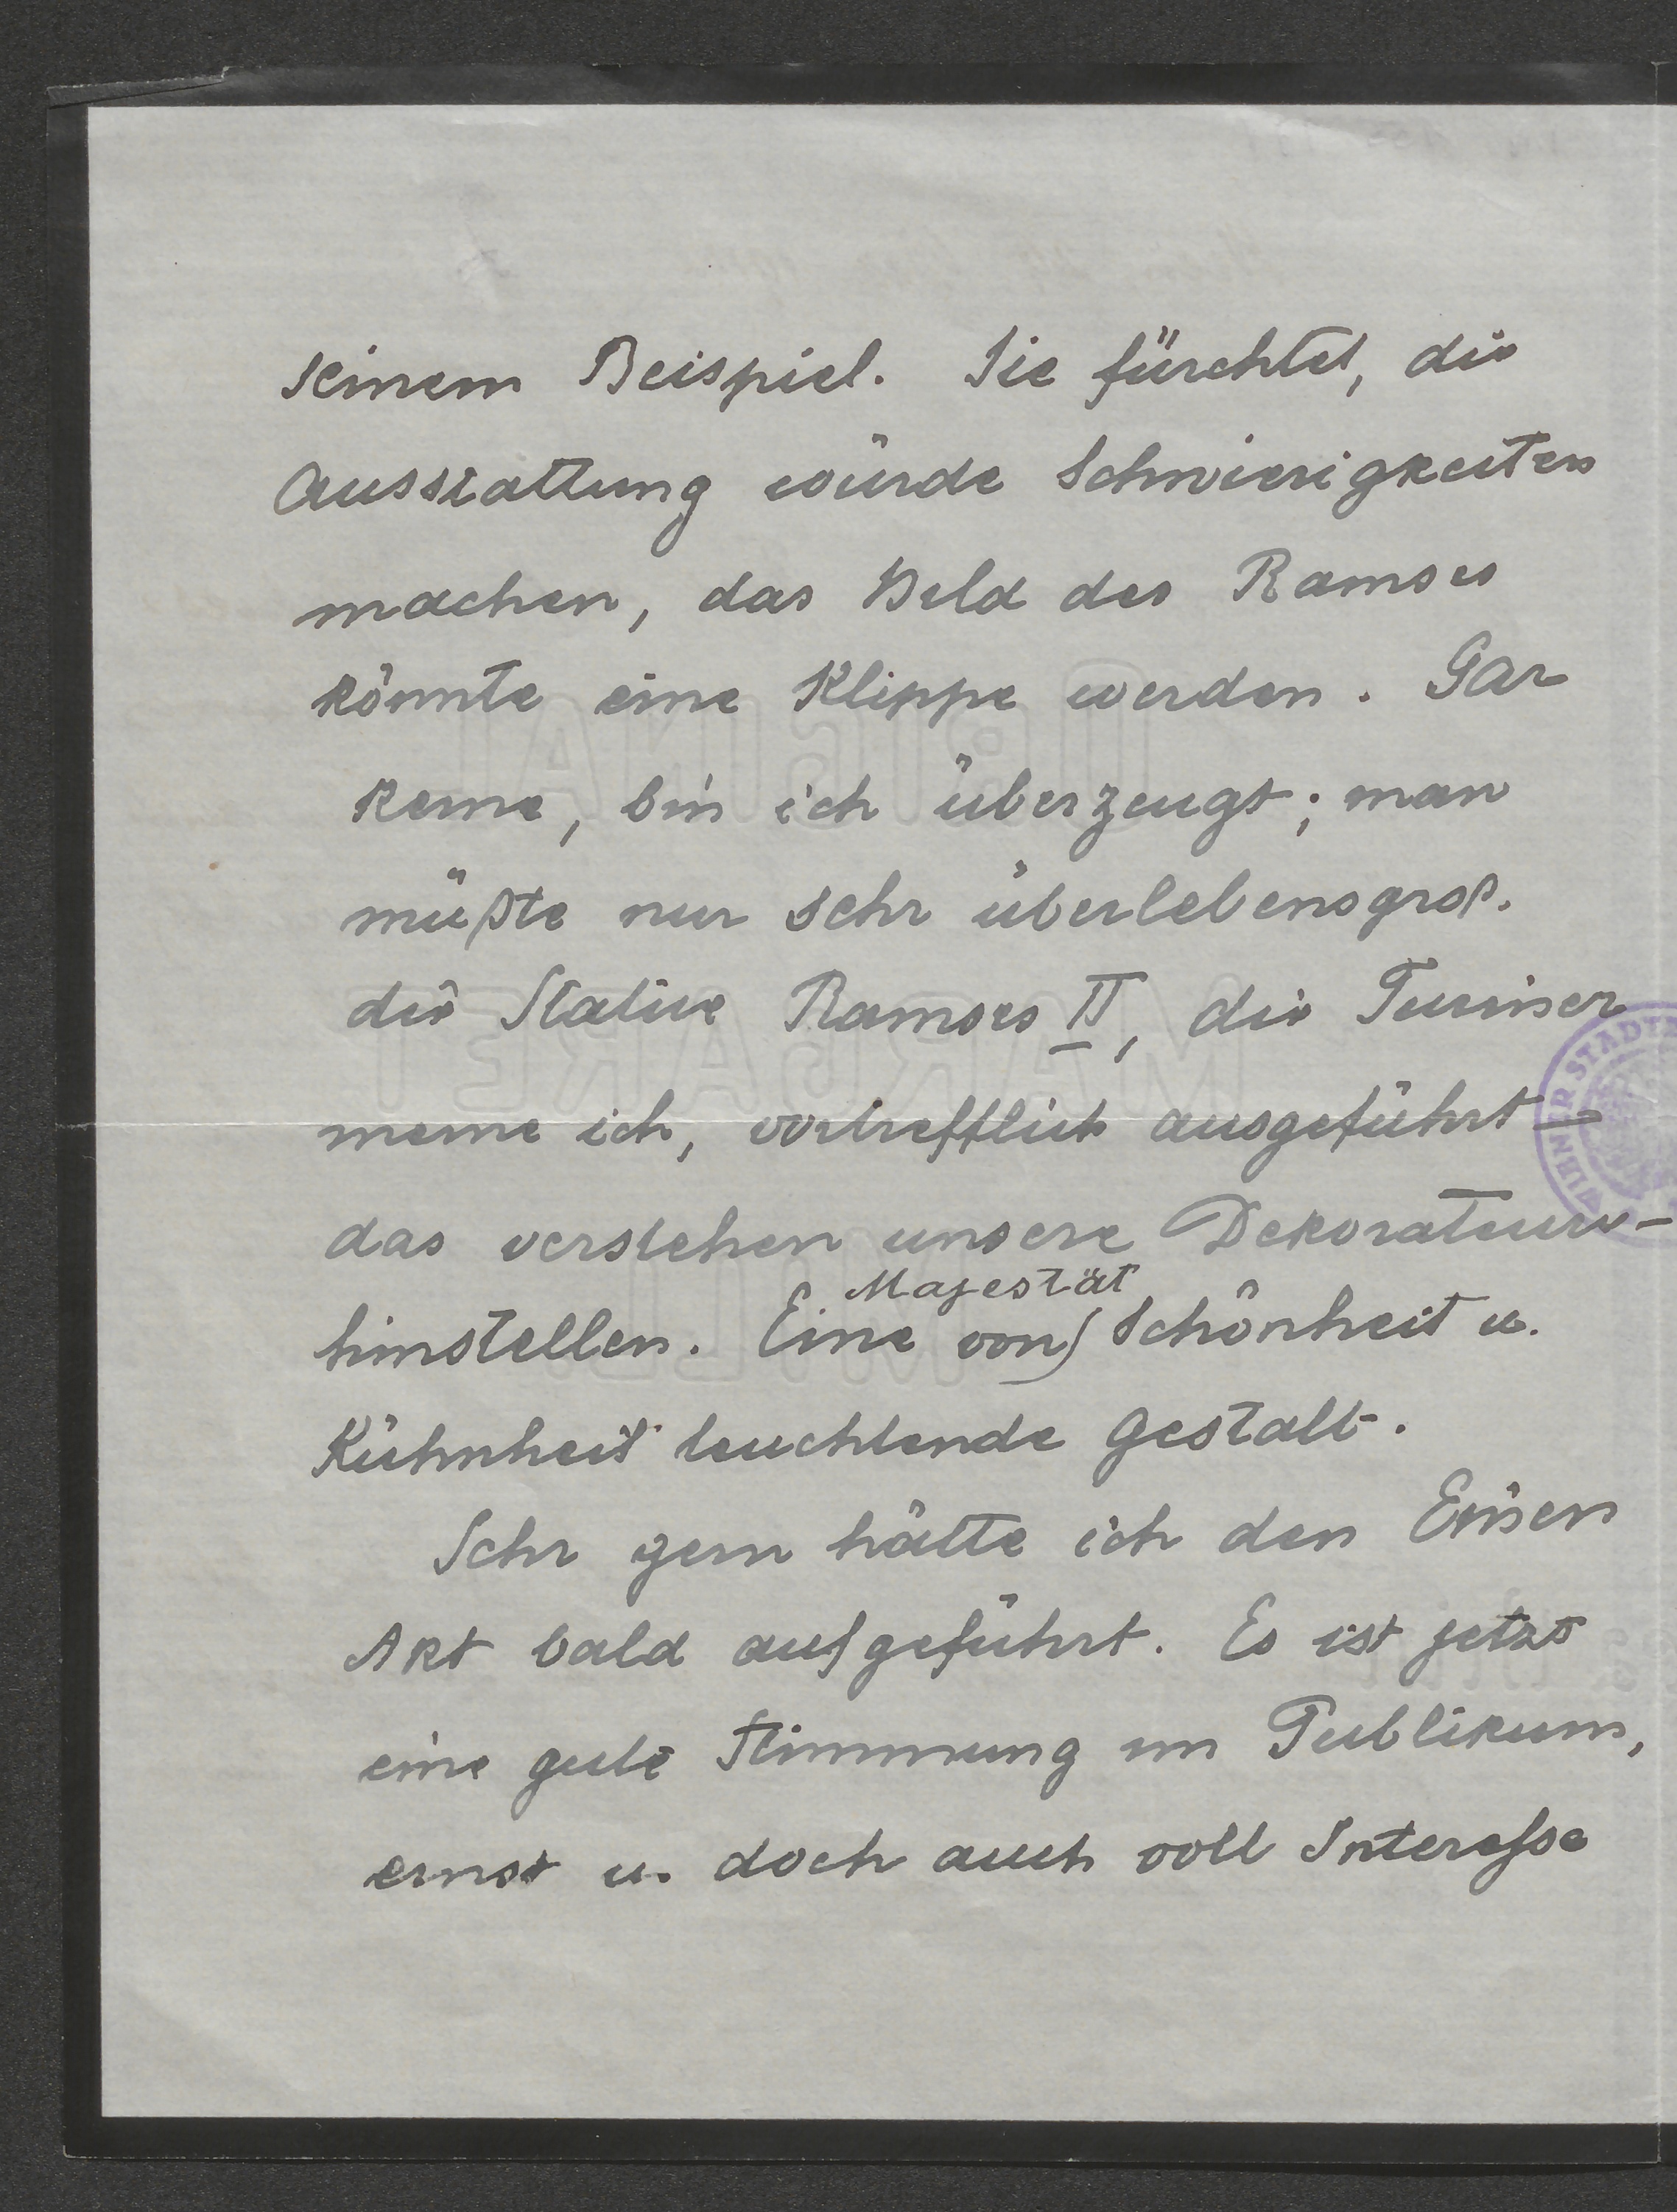 seinem Beispiel. Sie fürchtet, die
Ausstattung würde Schwierigkeiten
machen, das Bild des Ramses
könnte eine Klippe werden. Gar
keine, bin ich überzeugt; man
müßte nur sehr überlebensgroß.
die Statue Ramses II, die Turiner
meine ich, vortrefflich ausgeführt –
das verstehen unsere Dekorateure –
Majestät
hinstellen. Eine von Schönheit u.
Kühnheit leuchtende Gestalt.
Sehr gern hätte ich den Einen
Akt bald aufgeführt. Es ist jetzt
eine gute Stimmung im Publikum,
ernst u. doch auch voll Interesse
ORIGINAL
MARGARET
MILL
WIENER STADT